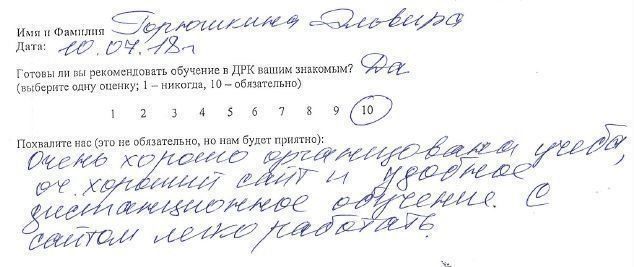 Имя и Фамилия Горюшкина Эльвира
Дата: 10.07.18г
Готовы ли вы рекомендовать обучение в ДРК вашим знакомым? Да
(выберите одну оценку; 1 – никогда, 10 – обязательно)
1 2 3 4 5 6 7 8 9 10
Похвалите нас (это не обязательно, но нам будет приятно):
Очень хорошо организована учеба,
оч. хороший сайт и удобное
дистанционное обучение. С
сайтом легко работать.